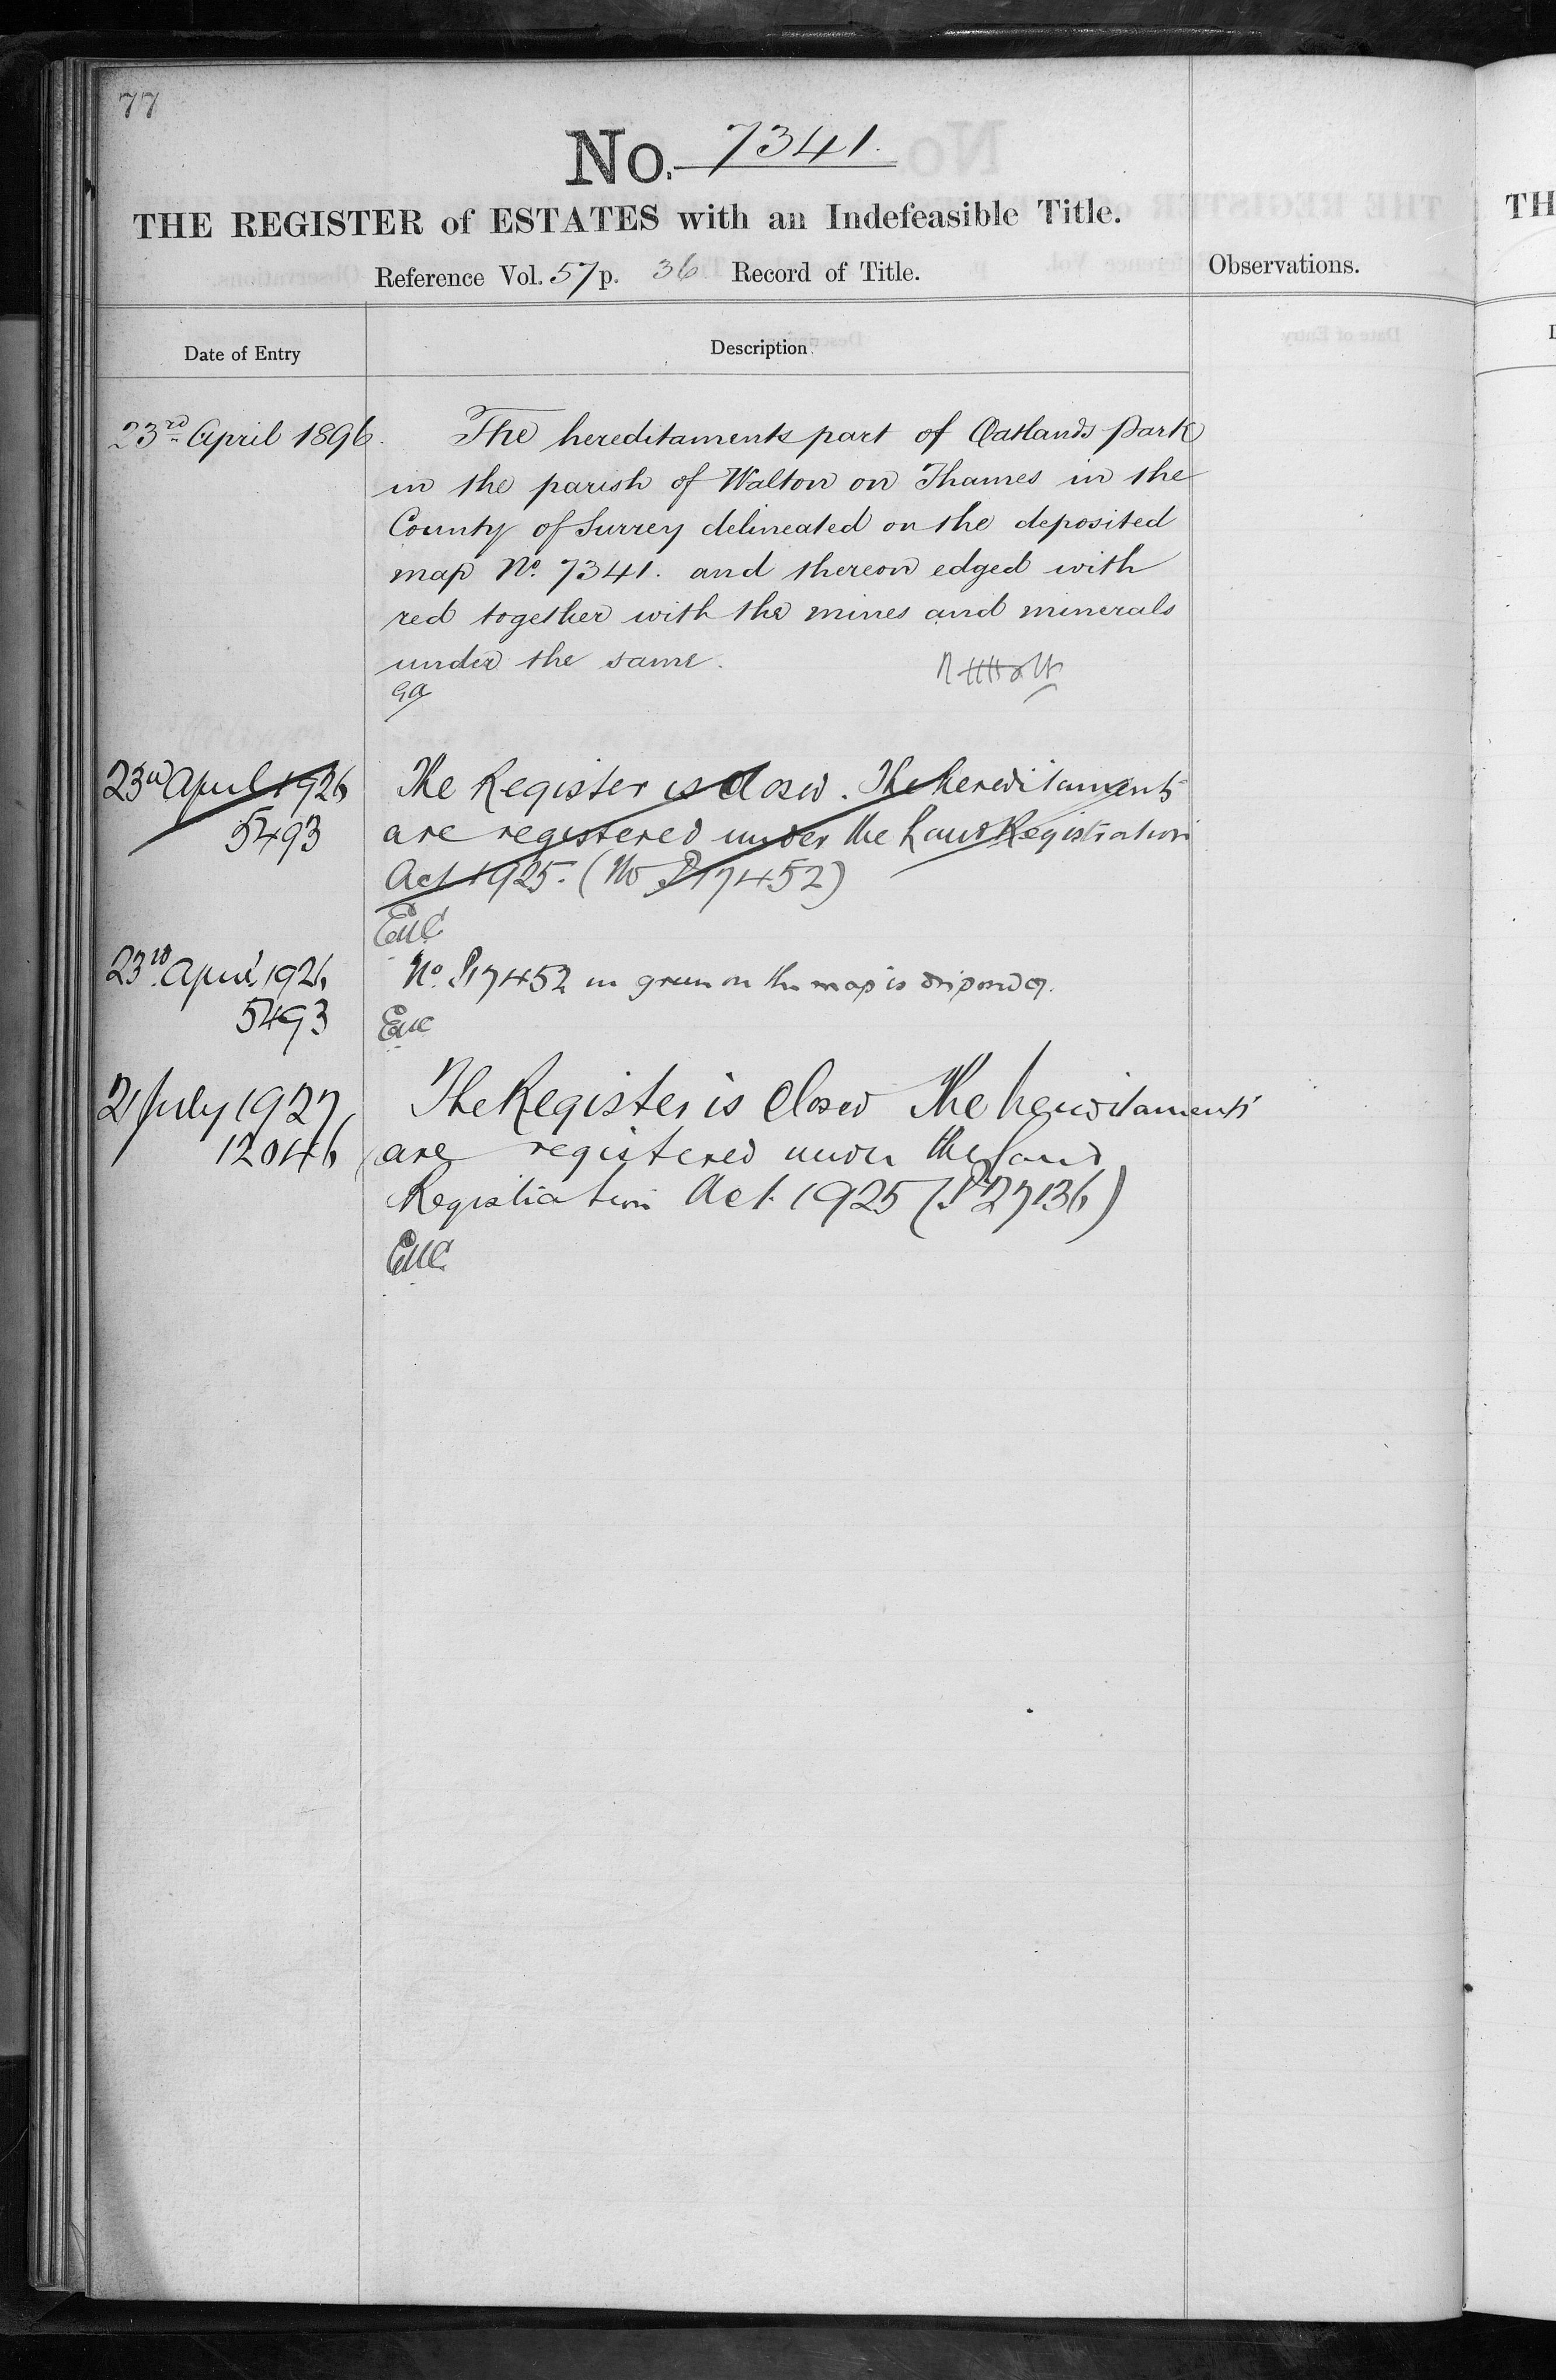 77
No. 7341.
THE REGISTER of ESTATES with an Indefeasible Title.
Reference Vol. 57 p. 36 Record of Title.
Observations.
Date of Entry
Description
23rd April 1896.
The hereditaments part of Oatlands Park
in the parish of Walton on Thames in the
County of Surrey delineated on the deposited
map No. 7341. and thereon edged with
red together with the mines and minerals
under the same.
23rd April 1926
5493
The Register is closed. The hereditaments
are registered under the Land Registration
Act 1925. (No P17452)
EMC
23rd April 1926
5493
No. P17452 in green on the map is disposed of.
EMC
21 July 1927
12046
The Register is closed The hereditaments
are registered under the Land
Registration Act 1925 (P27136)
EMC
TH